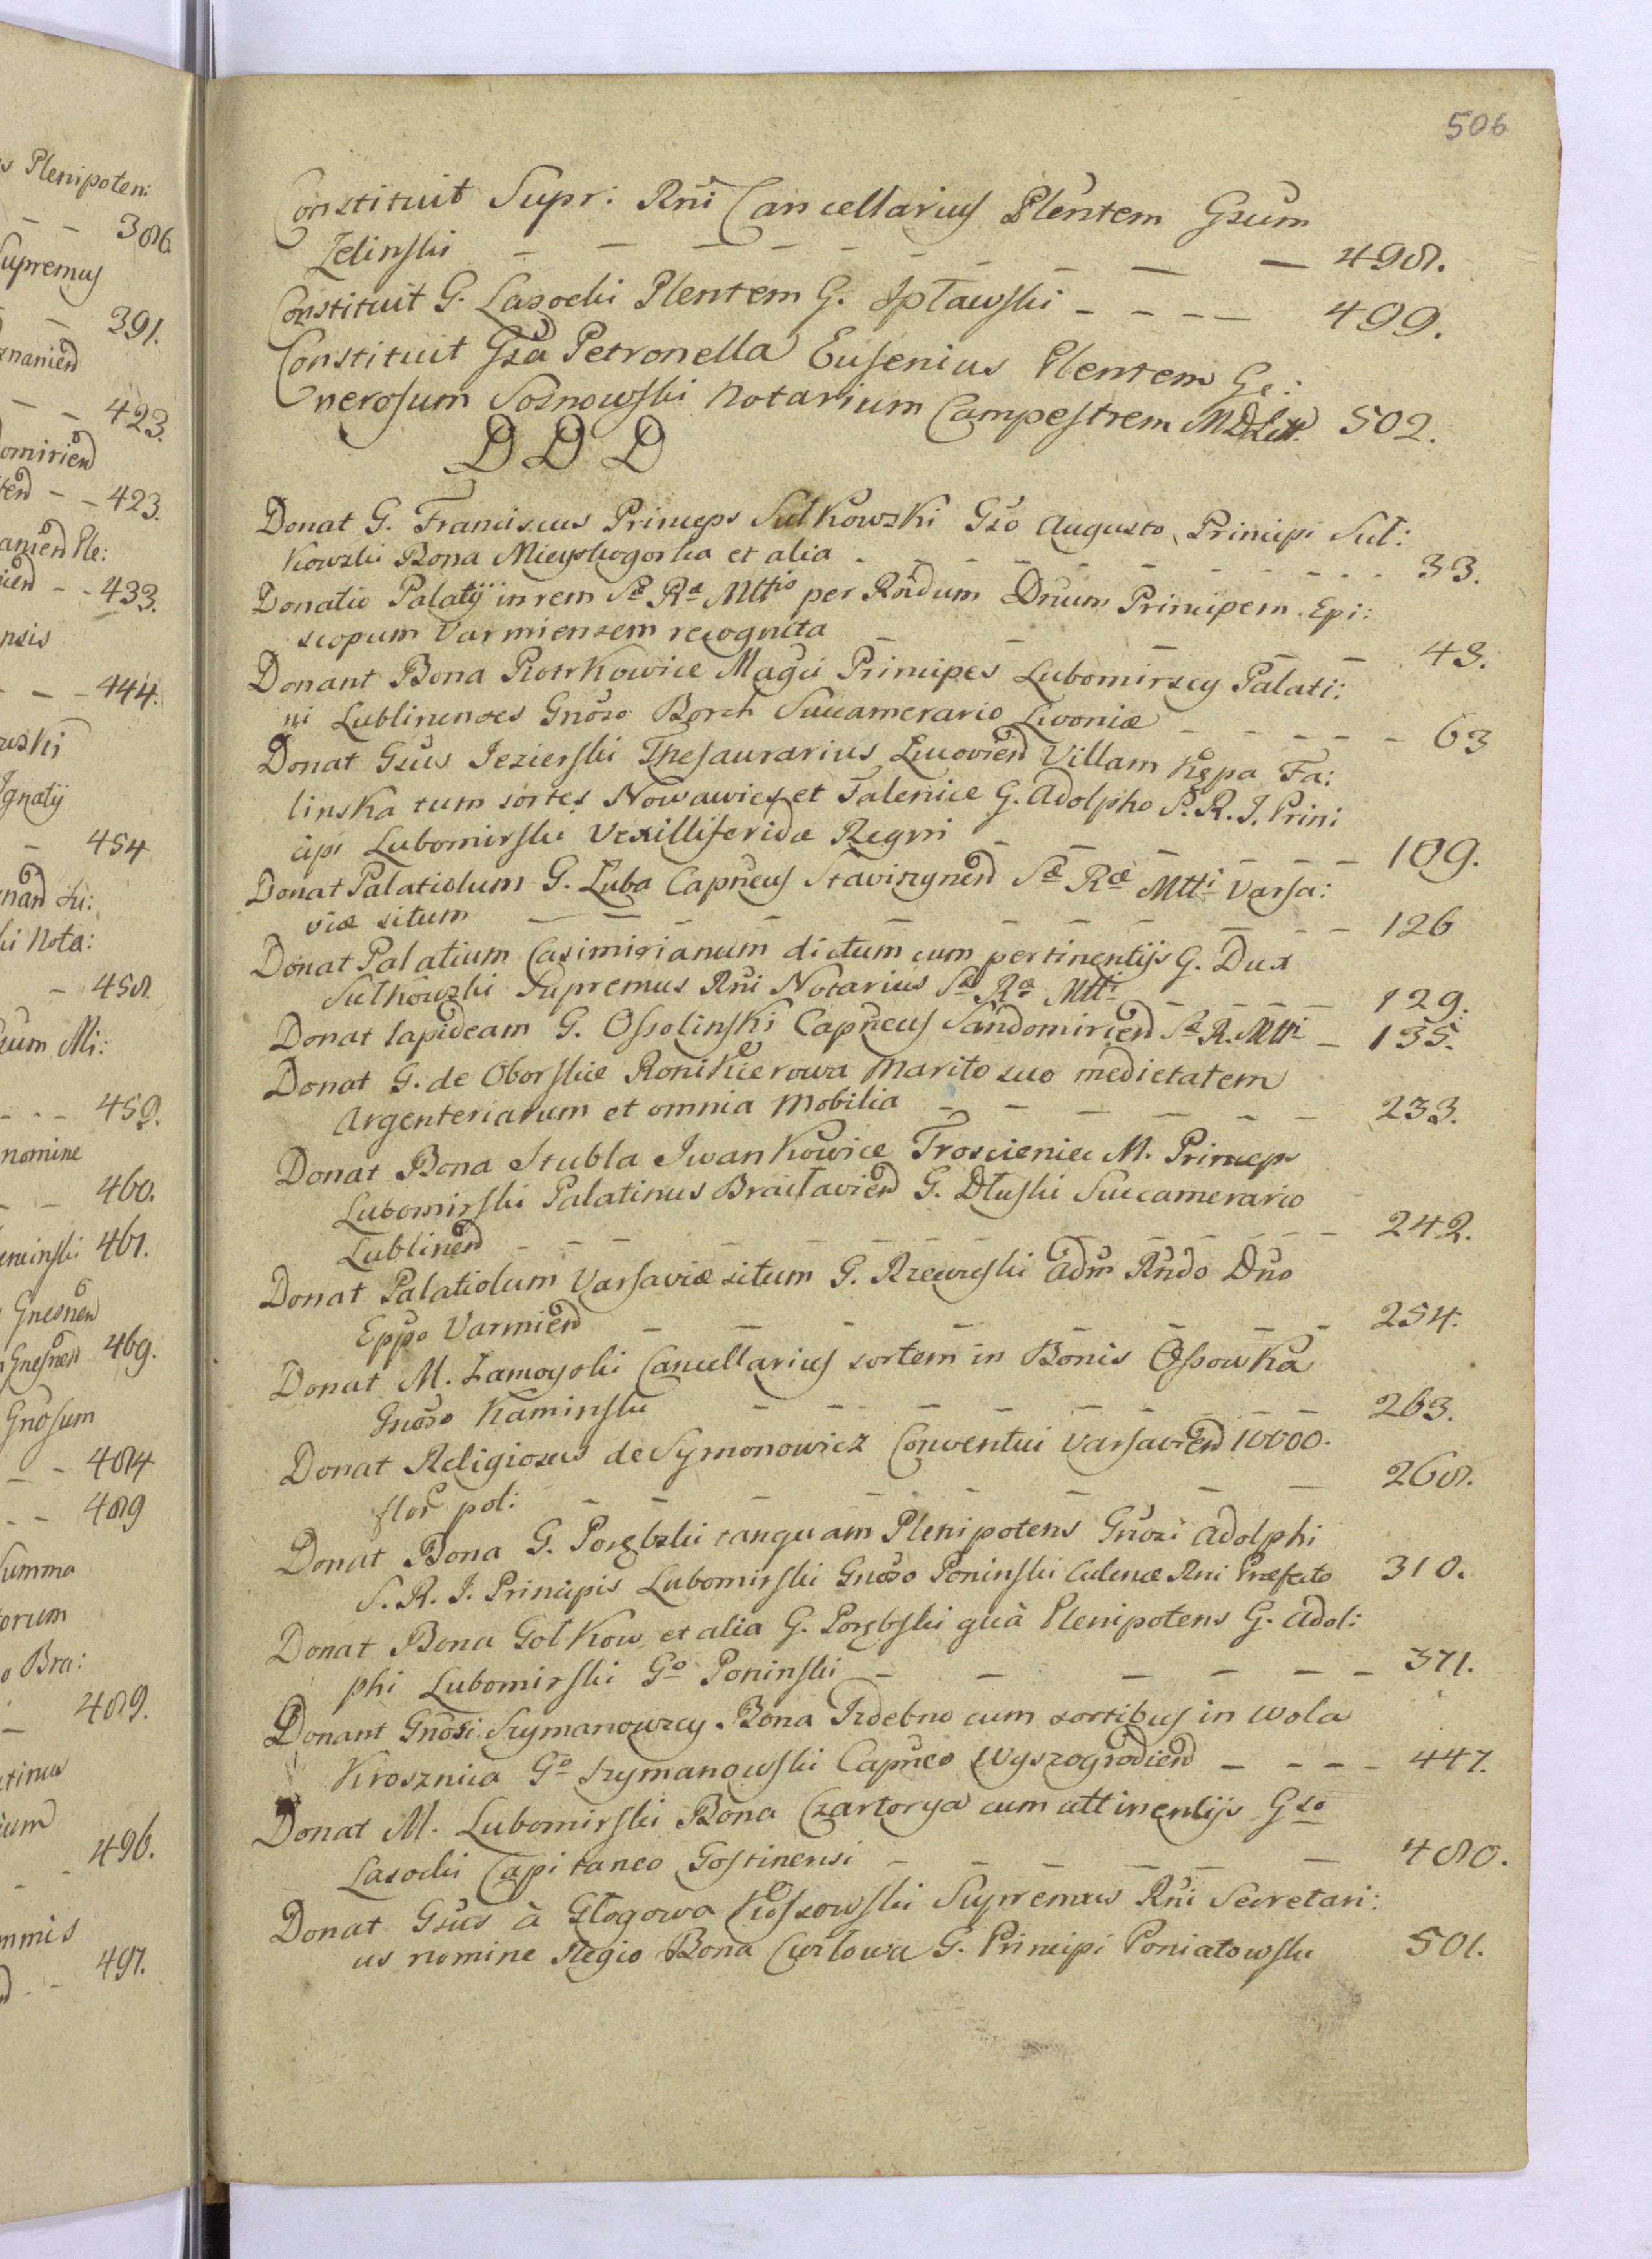 s Plenipoten:
- - 386.
Supremus
- 391.
znaniend
- - 423.
domiriend
- - 423.
aniend Ple:
- - 433.
nsis
- - - 444.
wski
Ignatij
- 454
ki Nota:
- 458.
sum Mi:
- - - 459.
nomine
- - 460.
461.
Gnesnen
Gnesnen 469.
Gnosum
- - 484
- - 489
Summa
torum
o Bra:
- 489.
tinus
ium
- 496.
mmis
- - 497.
506
Constituit Supr: Rni Cancellarius Plentem Gsum
Zelinski - - - - - - - - - - 498.
Constituit G. Lasocki Plentem G. Spławski - - - - 499.
Constituit Gsa Petronella Eusenius Plentem Ge:
nerosum Sosnowski Notarium Campestrem MDLitt. 502.
D D D
Donat G. Franciscus Princeps Sułkowski Gso Augusto Principi Suł:
kowski Bona Mieyskogorka et alia - - - - - - - - - 33.
Donatio Palatij in rem Sæ Ræ Mttis per Rndum Dnum Principem Epi:
scopum Varmiensem recognita - - - - - 43.
Donant Bona Piotrkowice Magci Principes Lubomirscy Palati:
ni Lublinenses Gnoso Borch Succamerario Livoniæ - - - - - 63
Donat Gsus Jezierski Thesaurarius Lucoviend Villam Kępa Fa:
linska tum sortes Nowawies et Falenice G. Adolpho S. R. J. Prin:
cipi Lubomirski Vexilliferidæ Regni - - - - - - 109.
Donat Palatiolum G. Luba Capneus Stavisznend Sæ Ræ Mtti Varsa:
viæ situm - - - - - - - - - - - 126
Donat Palatium Casimirianum dictum cum pertinentijs G. Dux
Sułkowski Supremus Rni Notarius Sæ Ræ Mtti - - - - 129.
Donat lapideam G. Ossolinski Capneus Sandomiriend Sæ R. Mtti - 135.
Donat G. de Oborskie Ronikierowa Marito suo medietatem
Argenteriarum et omnia Mobilia - - - - - - 233.
Donat Bona Stubla Iwankowice Troscieniec M. Princeps
Lubomirski Palatinus Bracłaviend G. Dłuski Succamerario
Lublinend - - - - - - - - - - - - 242.
Donat Palatiolum Varsaviæ situm G. Rzewuski Adm Rndo Dno
Eppo Varmiend - - - - - - - - 254.
Donat M. Zamoyski Cancellarius sortem in Bonis Ossowka
Gnoso Kaminski - - - - - - - - - 263.
Donat Religiosus de Symonowicz Conventui Varsaviend 10000.
flor pol: - - - - - - - - 268.
Donat Bona G. Porębski tanquam Plenipotens Gnosi Adolphi
S. R. J. Principis Lubomirski Gnoso Poninski Culinæ Rni Præfecto 310.
Donat Bona Golkow et alia G. Porębski quà Plenipotens G. Adol:
phi Lubomirski Go Poninski - - - - - - 371.
Donant Gnosi Szymanowscy Bona Izdebno cum sortibus in Wola
Krosznica Go Szymanowski Capneo Wyszogrodiend - - - - 447.
Donat M. Lubomirski Bona Czartorya cum attinentijs Gso
Lasocki Capitaneo Gostinensi - - - - - - 480.
Donat Gsus à Głogowa Kossowski Supremus Rni Secretari:
us nomine Regio Bona Curlowa G. Principi Poniatowski 501.